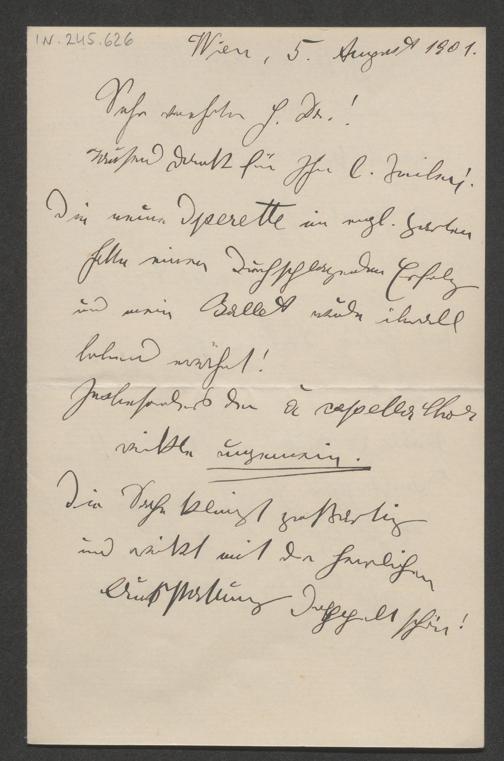 IN. 245.626
Wien, 5. August 1901.
Sehr verehrter H. Dr.!
Tausend Dank für Ihre l. Zeilen!
Die neue Operette im engl. Garten
hatte einen durchschlagenden Erfolg
und mein Ballet wurde überall
lobend erwähnt!
Insbesonders der à capella Chor
wirkte ungemein.
Die Sache klingt großartig
und wirkt mit der herrlichen
Ausstattung doppelt schön!